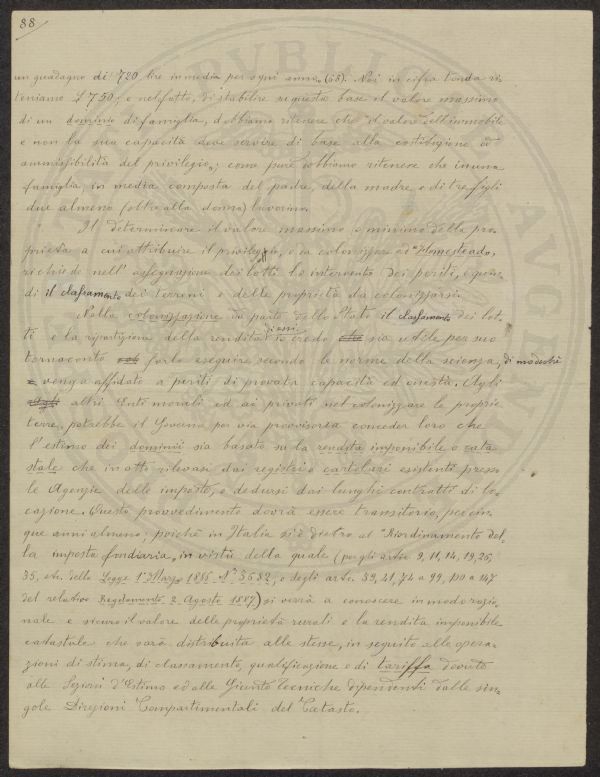 88
un guadagno di 720 lire in media per ogni anno (68). Noi in cifra tonda ri-
teniamo £ 750, e nel fatto, di stabilire su questa base il valore massimo
di un dominio di famiglia, dobbiamo ritenere che il valore dell'immobile
e non la sua capacità deve servire di base alla costituzione ed
ammissibilità del privilegio; come pure dobbiamo ritenere che in una
famiglia in media composta del padre, della madre e di tre figli
due almeno (oltre alla donna) lavorino.
Il determinare il valore massimo o minimo della pro-
prietà a cui attribuire il privilegio, o da colonizzare ad "Homesteads,
richiede nell'assegnazione dei lotti lo intervento dei periti, e quin-
di il classamento dei terreni e delle proprietà da colonizzarsi.
Nella colonizzazione da parte dello Stato il classamento dei lot-
ti e la ripartizione della rendita di essi credo sia utile per suo
tornaconto farlo eseguire secondo le norme della scienza, di modochè
venga affidato a periti di provata capacità ed onestà. Agli
altri Enti morali ed ai privati nel colonizzare le proprie
terre, potrebbe il Governo per via provvisoria conceder loro che
l'estimo dei dominii sia basato su la rendita imponibile o cata-
stale che in atti rilevasi dai registri o cartolari esistenti presso
le Agenzie delle imposte, o dedursi dai lunghi contratti di lo-
cazione. Questo provvedimento dovrà essere transitorio, per cin-
que anni almeno; poichè in Italia si è dietro al "Riordinamento del-
la imposta fondiaria, in virtù della quale (per gli artic. 9, 11, 14, 19, 25,
35, etc. della Legge 1° Marzo 1886 N° 3682, e degli artic. 39, 41, 74 a 99, 110 a 147
del relativo Regolamento 2 Agosto 1887) si verrà a conoscere in modo razio-
nale e sicuro il valore delle proprietà rurali e la rendita imponibile
catastale che sarà distribuita alle stesse, in seguito alle opera-
zioni di stima, di classamento, qualificazione e di tariffa dovute
alle Sezioni d'Estimo ed alle Giunte Tecniche dipendenti dalle sin-
gole Direzioni Compartimentali del Catasto.